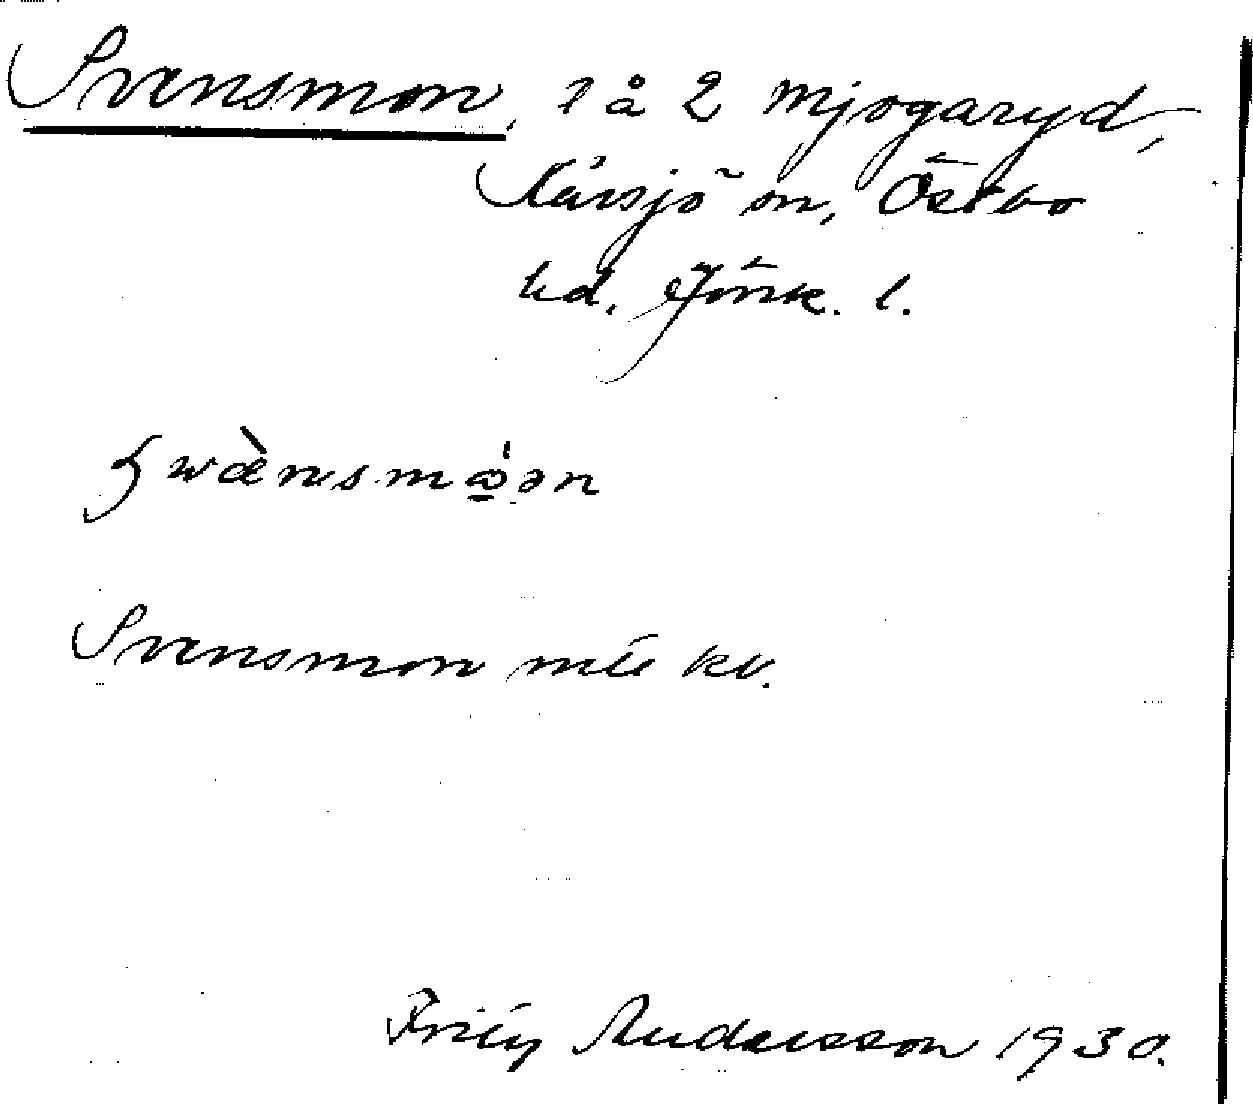 Svensmon, 1 å 2 Mjogaryd,
Kävsjö sn, Östbo
hd. Jönk. l.
swæ̀nsmɷ̠́ən
Svensmon mtl kv.
Frity Andersson 1930.